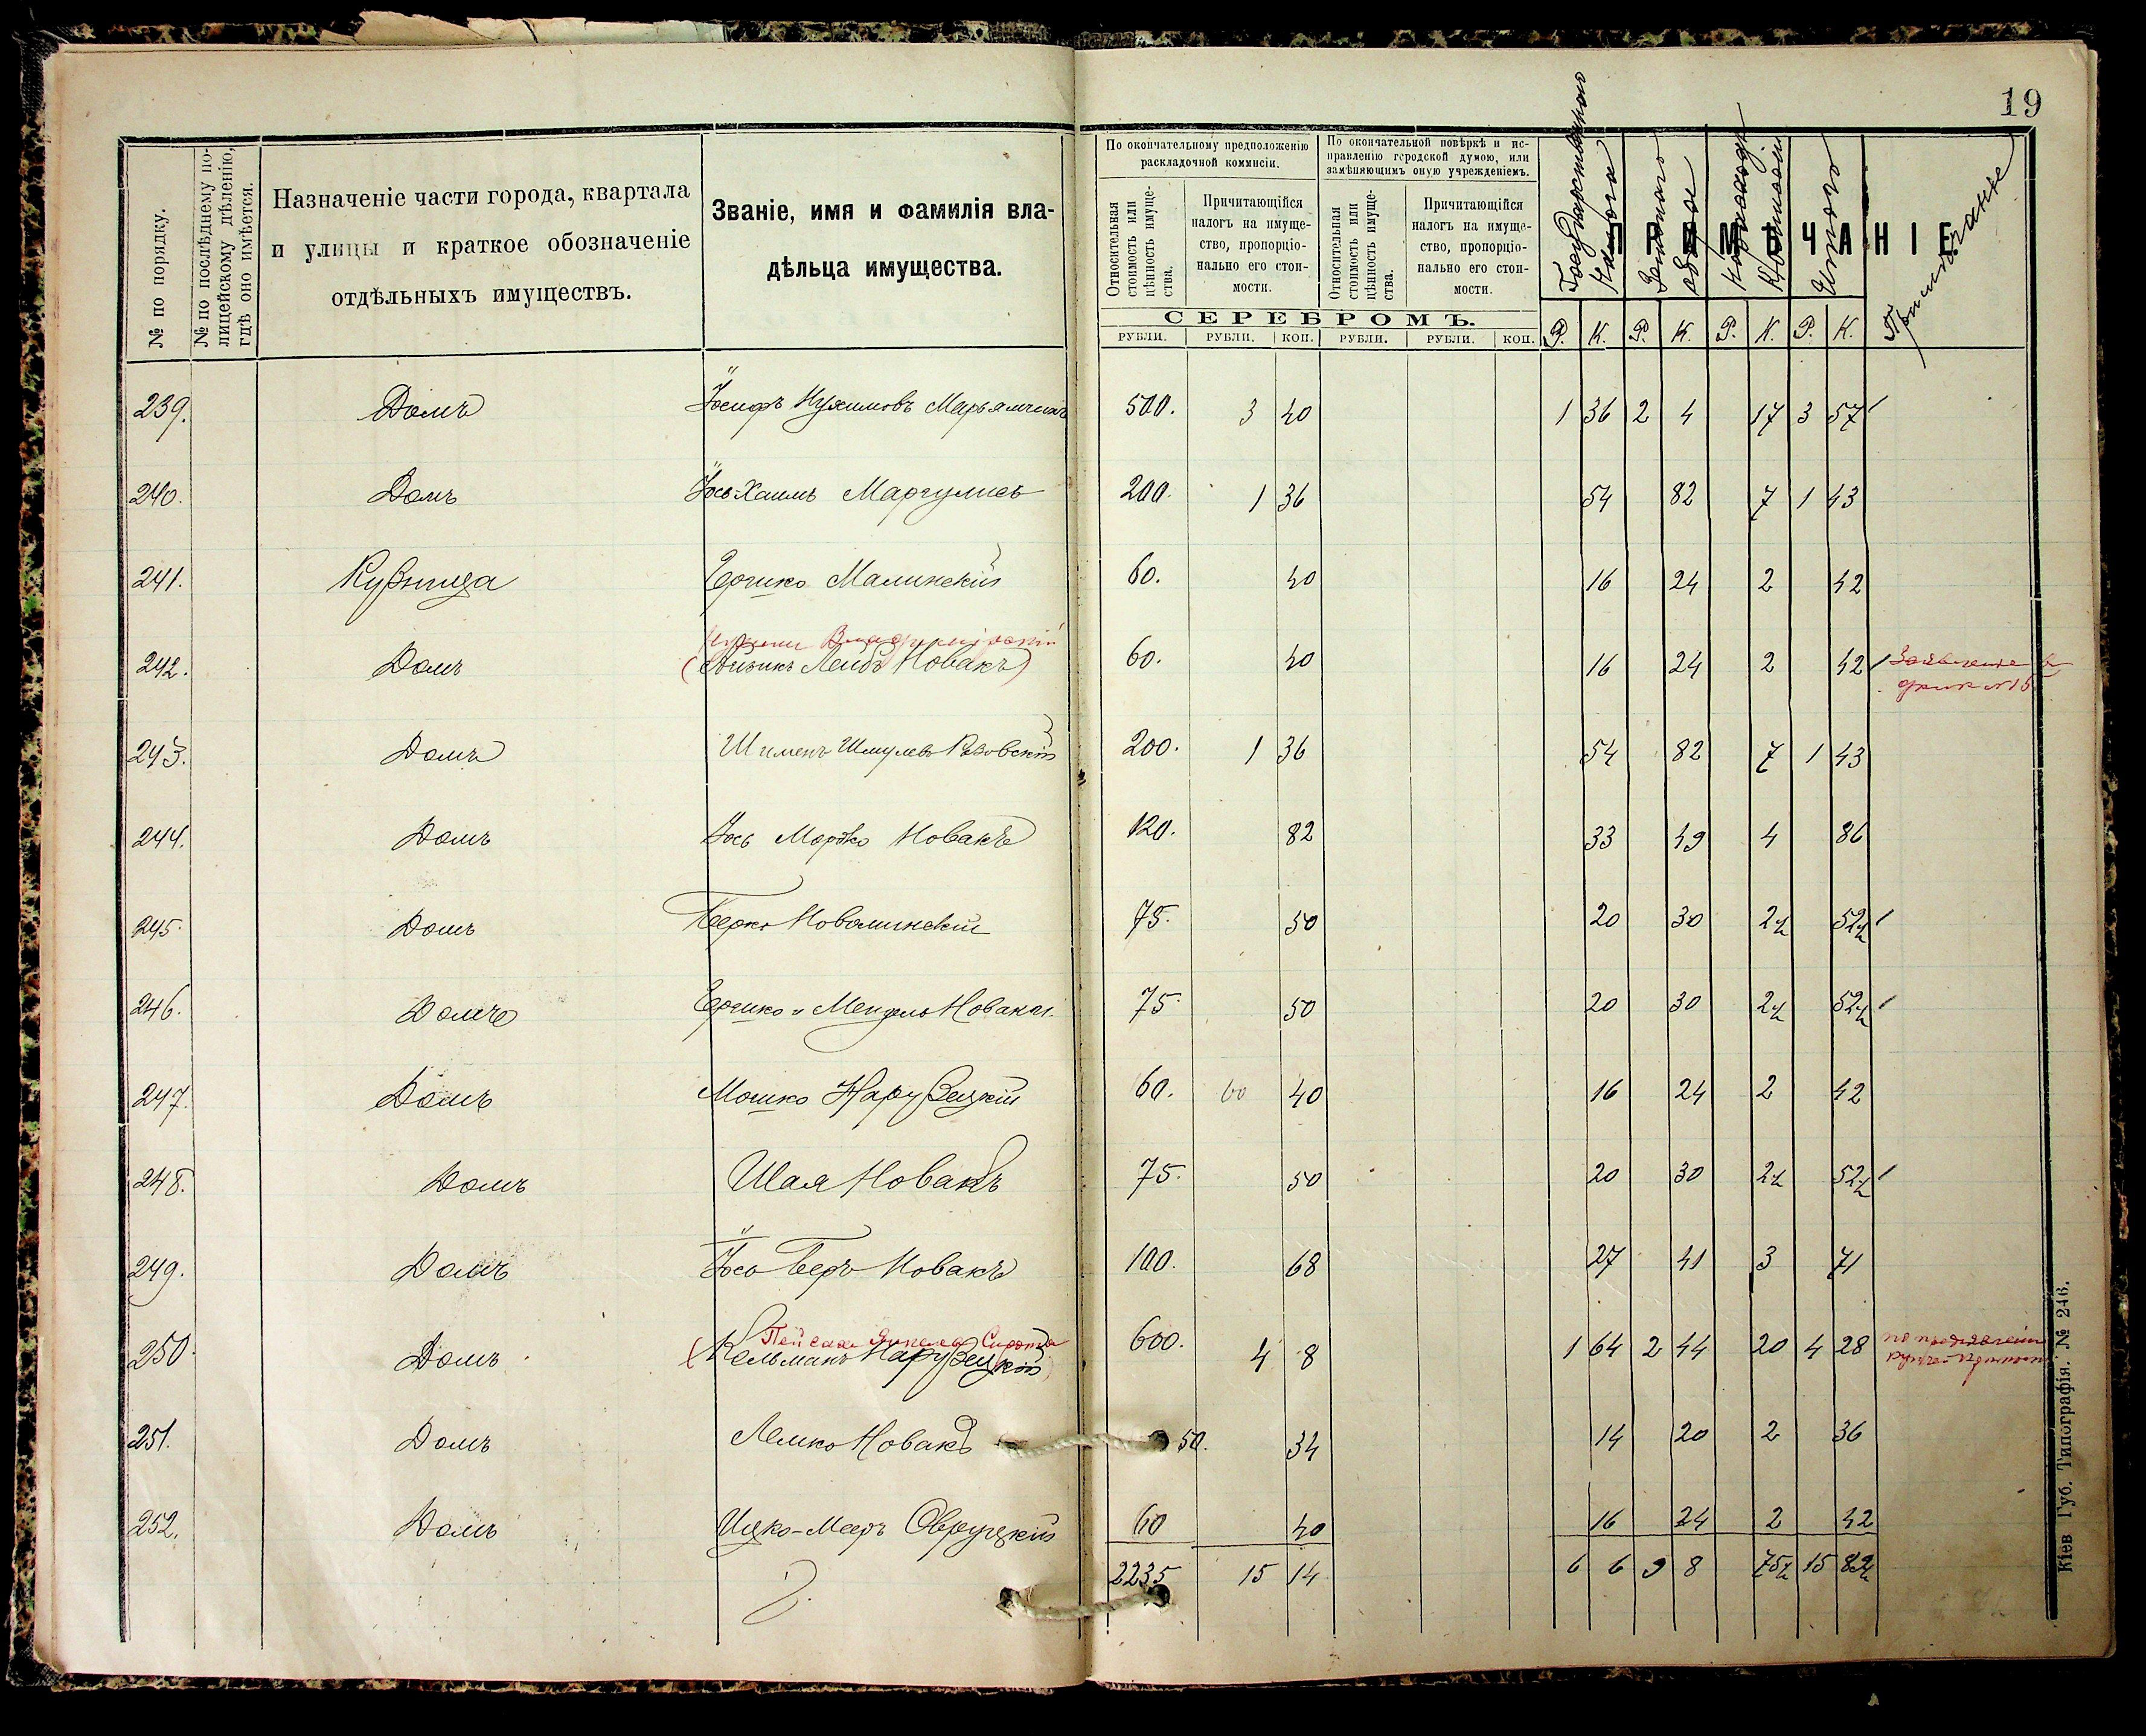 19
№ по порядку.
№ по послѣднему по-
лицейскому дѣленію,
гдѣ оно имѣется.
Назначеніе части города, квартала
и улицы и краткое обозначеніе
отдѣльныхъ имуществъ.
Званіе, имя и фамилія вла-
дѣльца имущества.
По окончательному предположенію
раскладочной коммисіи.
По окончательной повѣркѣ и ис-
правленію городской думою, или
замѣняющимъ оную учрежденіемъ.
Относительная
стоимость или
цѣнность имуще-
ства.
Причитающійся
налогъ на имуще-
ство, пропорціо-
нально его стои-
мости.
Относительная
стоимость или
цѣнность имуще-
ства.
Причитающійся
налогъ на имуще-
ство, пропорціо-
нально его стои-
мости.
СЕРЕБРОМЪ.
РУБЛИ. РУБЛИ. КОП. РУБЛИ. РУБЛИ. КОП.
ПРИМѢЧАНІЕ
Государственного
Налога
Земского
сбора
Итого
Примѣчаніе
Р. К. Р. К. Р. К. Р. К.
239. Домъ 500. 3 40 1 36 2 4 17 3 57
240. Домъ Іось Хаимъ Маргулисъ 200. 1 36 54 82 7 1 43
241. Кузница Гершко Малинскій 60. 40 16 24 2 42
242. Домъ (Айзикъ Лейбъ Новакъ) 60. 40 16 24 2 42 Заявленіе
243. Домъ Шмулевъ 200. 1 36 54 82 7 1 43
244. Домъ Іось Мордко Новакъ 120. 82 33 49 4 86
245. Домъ Берко Новалинскій 75. 50 20 30 2½ 52½
246. Домъ Гершко и Мендель Новаки. 75. 50 20 30 2½ 52½
247. Домъ Мошко Нарузецкій 60. 60 40 16 24 2 42
248. Домъ Шая Новакъ 75. 50 20 30 2½ 52½
249. Домъ Іось Беръ Новакъ 100. 68 27 41 3 71
Пейсахъ Янкелевъ Сирота
250 Домъ (Кельманъ Нарузецкій) 600. 4 8 1 64 2 44 20 4 28
251. Домъ Лемко Новакъ 50. 34 14 20 2 36
252. Домъ Ицко-Мееръ Овруцкій 60 40 16 24 2 42
2235 15 14 6 6 9 8 75½ 15 82½
Кіев Губ. Типографія. № 246.